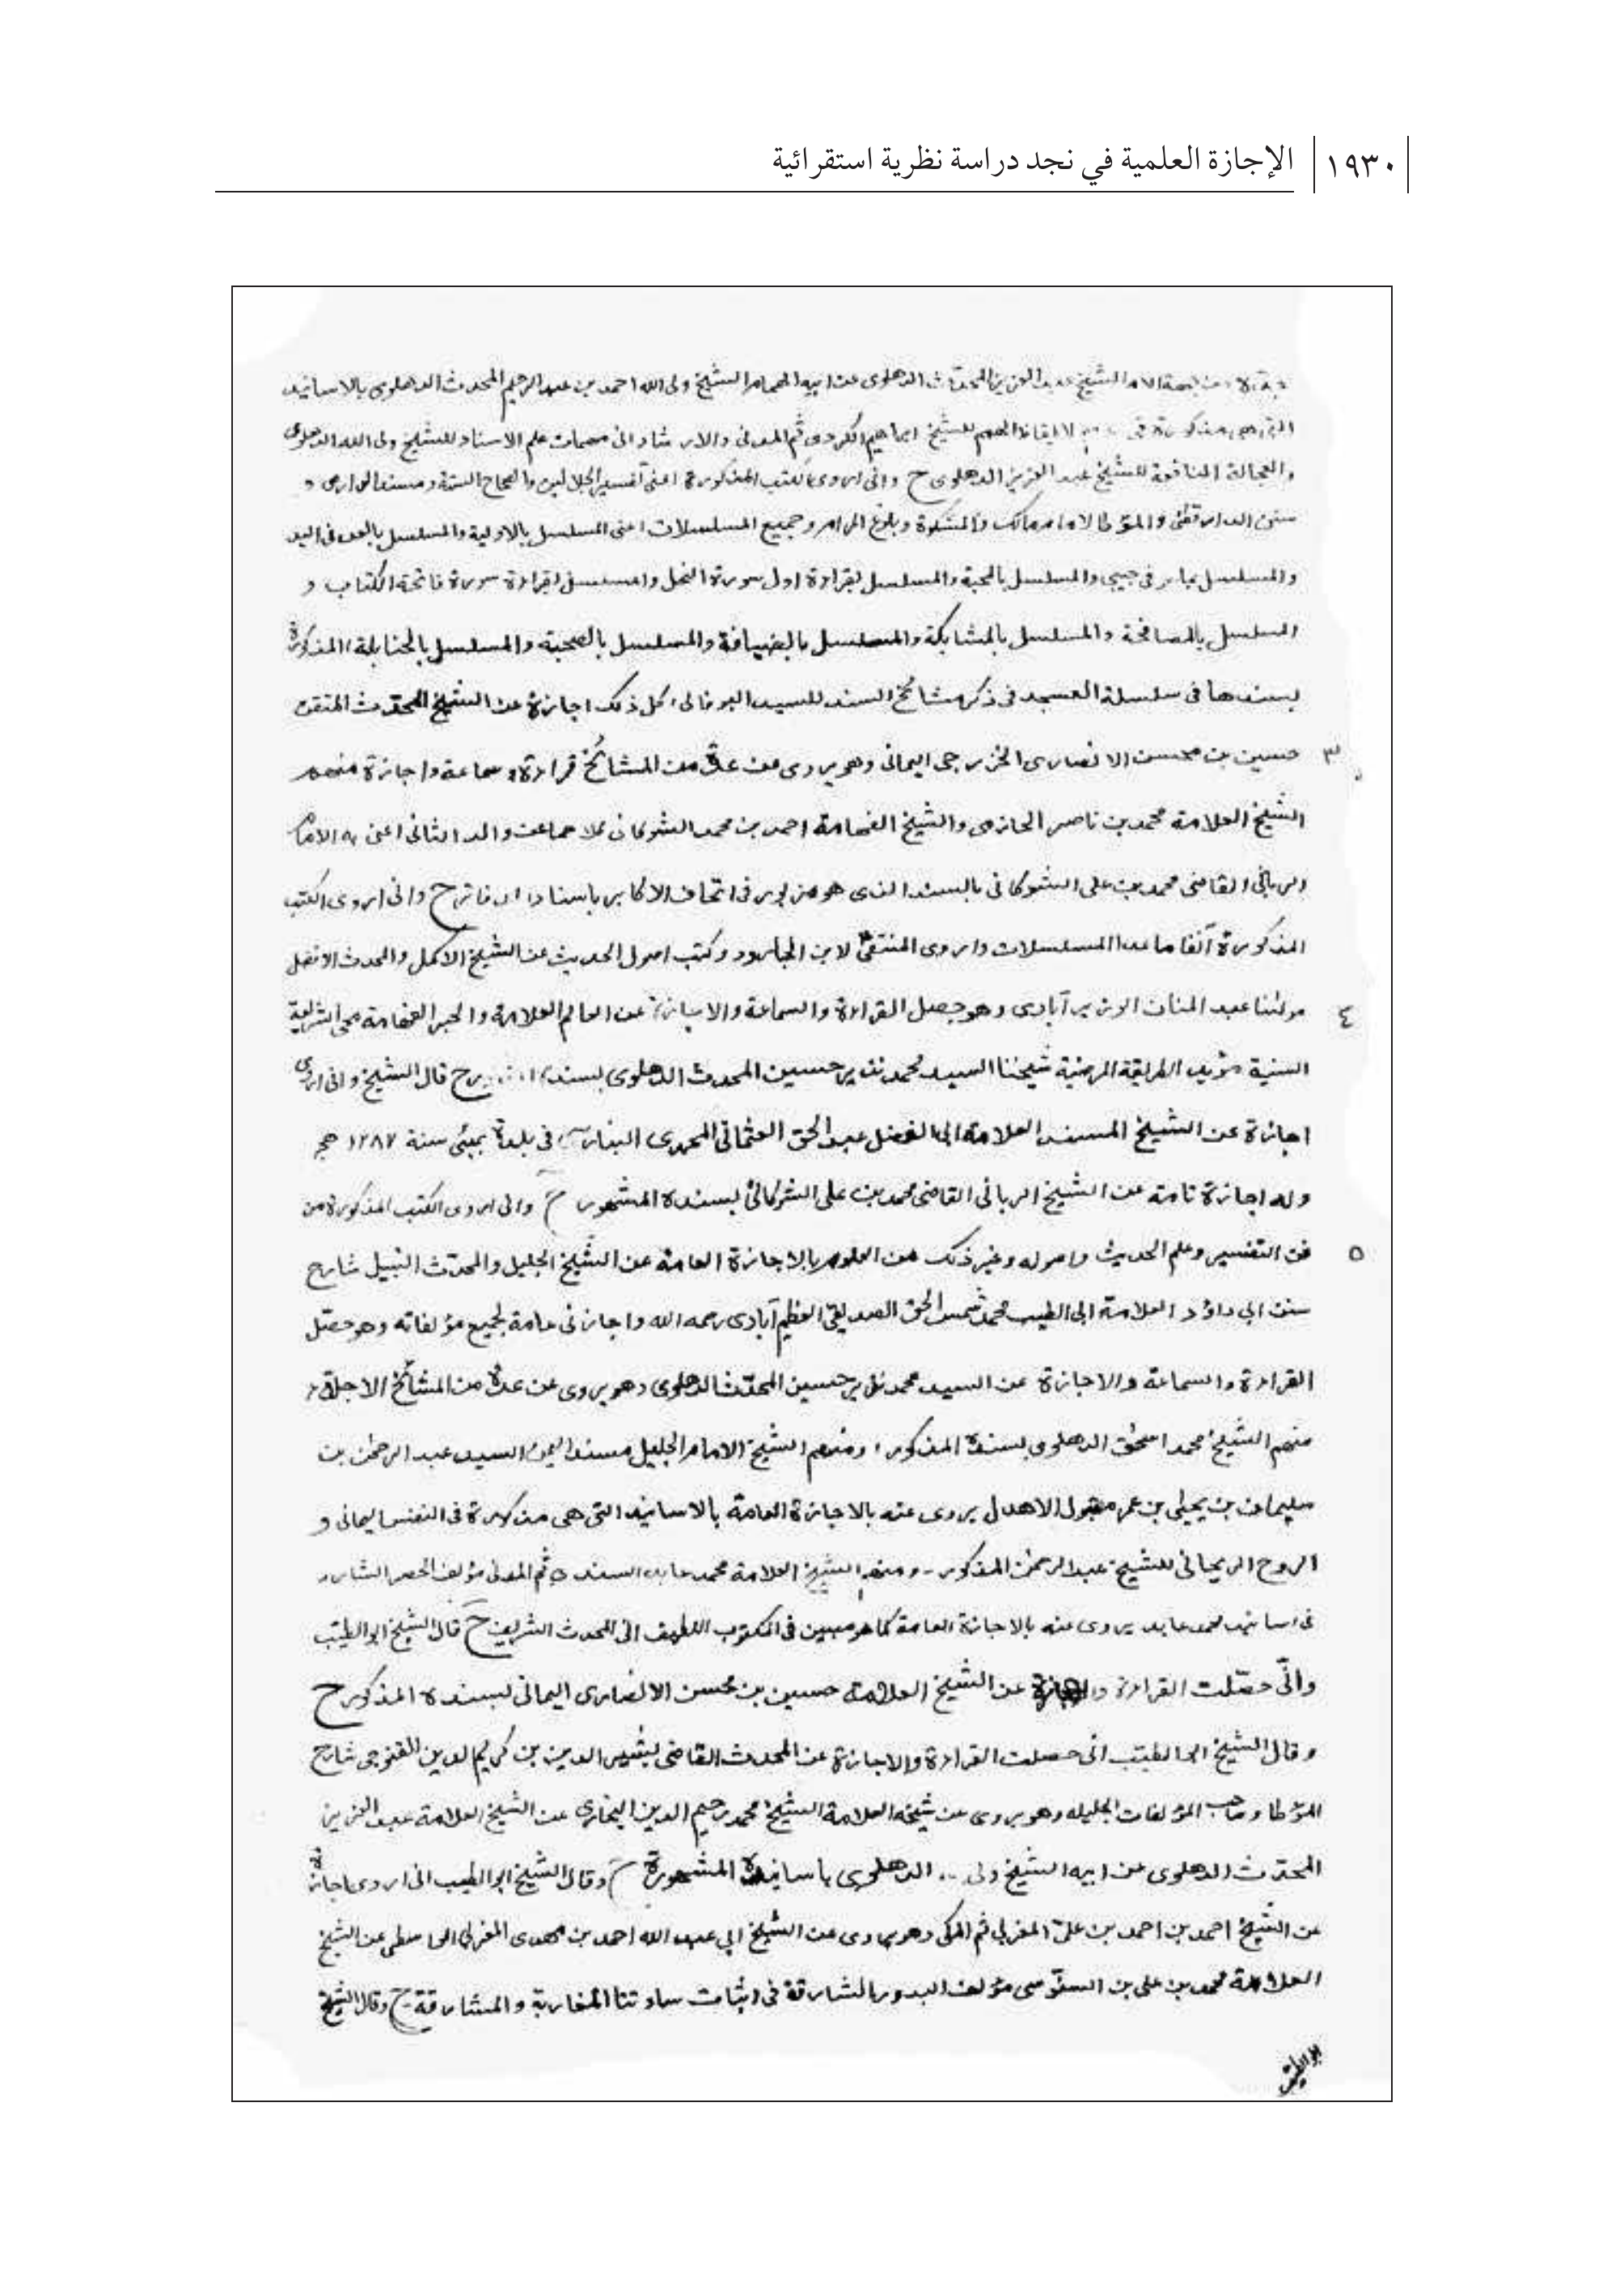 ١٩٣٠ الإجازة العلمية في نجد دراسة نظرية استقرائية
الشيخ عبد العزيز المحدث الدهلوي عن ابيه الهمام الشيخ ولى الله احمد بن عبد الرحيم المحدث الدهلوى بالاسانيد
التى هى مذكورة فى الايقاظ الهمم للشيخ ابراهيم الكردى ثم المدنى والارشاد الى مهمات علم الاسناد للشيخ ولى الله الدهلوى
والعجالة النافعة للشيخ عبد العزيز الدهلوى ح وانى اروى الكتب المذكورة اعنى تفسير الجلالين والصحاح الستة ومسند الدارمى و
سنن الدارقطنى والمؤطا لامام مالك والمشكوة وبلوغ المرام وجميع المسلسلات اعنى المسلسل بالاولية والمسلسل بالعد فى اليد
والمسلسل بما فى جيبى والمسلسل بالمحبة والمسلسل بقراءة اول سورة النحل والمسلسل بقراءة سورة فاتحة الكتاب و
المسلسل بالمصافحة والمسلسل بالمشابكة والمسلسل بالضيافة والمسلسل بالصحبة والمسلسل بالحنابلة المذكورة
بسندها فى سلسلة العسجد فى ذكر مشائخ السند للسيد البوفالى كل ذلك اجازة عن الشيخ المحدث المتقن
٣ حسين بن محسن الانصارى الخزرجى اليمانى وهو يروى عن عدة من المشائخ قراءة وسماعة واجازة منهم
الشيخ العلامة محمد بن ناصر الحازمى والشيخ الفهامة احمد بن محمد الشوكانى كلاهما عن والد الثانى اعنى به الامام
الربانى القاضى محمد بن على الشوكانى بالسند الذى هو مزبور فى اتحاف الاكابر باسناد الدفاتر ح وانى اروى الكتب
المذكورة آنفا ماعدا المسلسلات واروى المنتقى لابن الجارود وكتب اصول الحديث عن الشيخ الاكمل والمحدث الافضل
٤ مولنا عبد المنان الوزير آبادى وهو حصل القراءة والسماعة والاجازة عن العالم العلامة والحبر الفهامة محى الشريعة
السنية مؤيد الطريقة المرضية شيخنا السيد محمد نذير حسين المحدث الدهلوى بسنده ح قال الشيخ وانى اروى
اجازة عن الشيخ المسند العلامة ابى الفضل عبد الحق العثمانى المحمدى البنارسى فى بلدة بمبئى سنة ١٢٨٧ هجر
وله اجازة تامة عن الشيخ الربانى القاضى محمد بن على الشوكانى بسنده المشهور ح وانى اروى الكتب المذكورة من
٥ فن التفسير وعلم الحديث واصوله وغير ذلك من العلوم بالاجازة العامة عن الشيخ الجليل والمحدث النبيل شارح
سنن ابى داؤد العلامة ابى الطيب محمد شمس الحق الصديقى العظيم آبادى رحمه الله واجازنى عامة لجميع مؤلفاته وهو حصّل
القراءة والسماعة والاجازة عن السيد محمد نذير حسين المحدّث الدهلوى وهو يروى عن عدة من المشائخ الاجلة
منهم الشيخ محمد اسحٰق الدهلوى بسنده المذكور ومنهم الشيخ الامام الجليل مسند اليمن السيد عبد الرحمٰن بن
سليمان بن يحيى بن عمر مقبول الاهدل يروى عنه بالاجازة العامة بالاسانيد التى هى مذكورة فى النفس اليمانى و
الروح الريحانى للشيخ عبد الرحمٰن المذكور ومنهم الشيخ العلامة محمد عابد السندى ثم المدنى مؤلف الحصر الشارد
فى اسانيد محمد عابد يروى عنه بالاجازة العامة كما هو مبين فى المكتوب اللطيف الى المحدث الشريف ح قال الشيخ ابو الطيّب
وانّى حصّلت القراءة والاجازة عن الشيخ العلامة حسين بن محسن الانصارى اليمانى بسنده المذكور ح
وقال الشيخ ابو الطيب انى حصلت القراءة والاجازة عن المحدث القاضى بشير الدين بن كريم الدين القنوجى شارح
المؤطا وصاحب المؤلفات الجليله وهو يروى عن شيخه العلامة الشيخ محمد رحيم الدين البخارى عن الشيخ العلامة عبد العزيز
المحدّث الدهلوى عن ابيه الشيخ ولى الدهلوى بأسانيده المشهورة ح وقال الشيخ ابو الطيب انى اروى اجازة
عن الشيخ احمد بن احمد بن على المغربى ثم المكى وهو يروى عن الشيخ ابى عبد الله احمد بن مهدى المغربى عن الشيخ
العلامة محمد بن على بن السنوسى مؤلف البدور الشارقة فى اثبات ساداتنا المغاربة والمشارقة ح وقال الشيخ
ابو الطيب